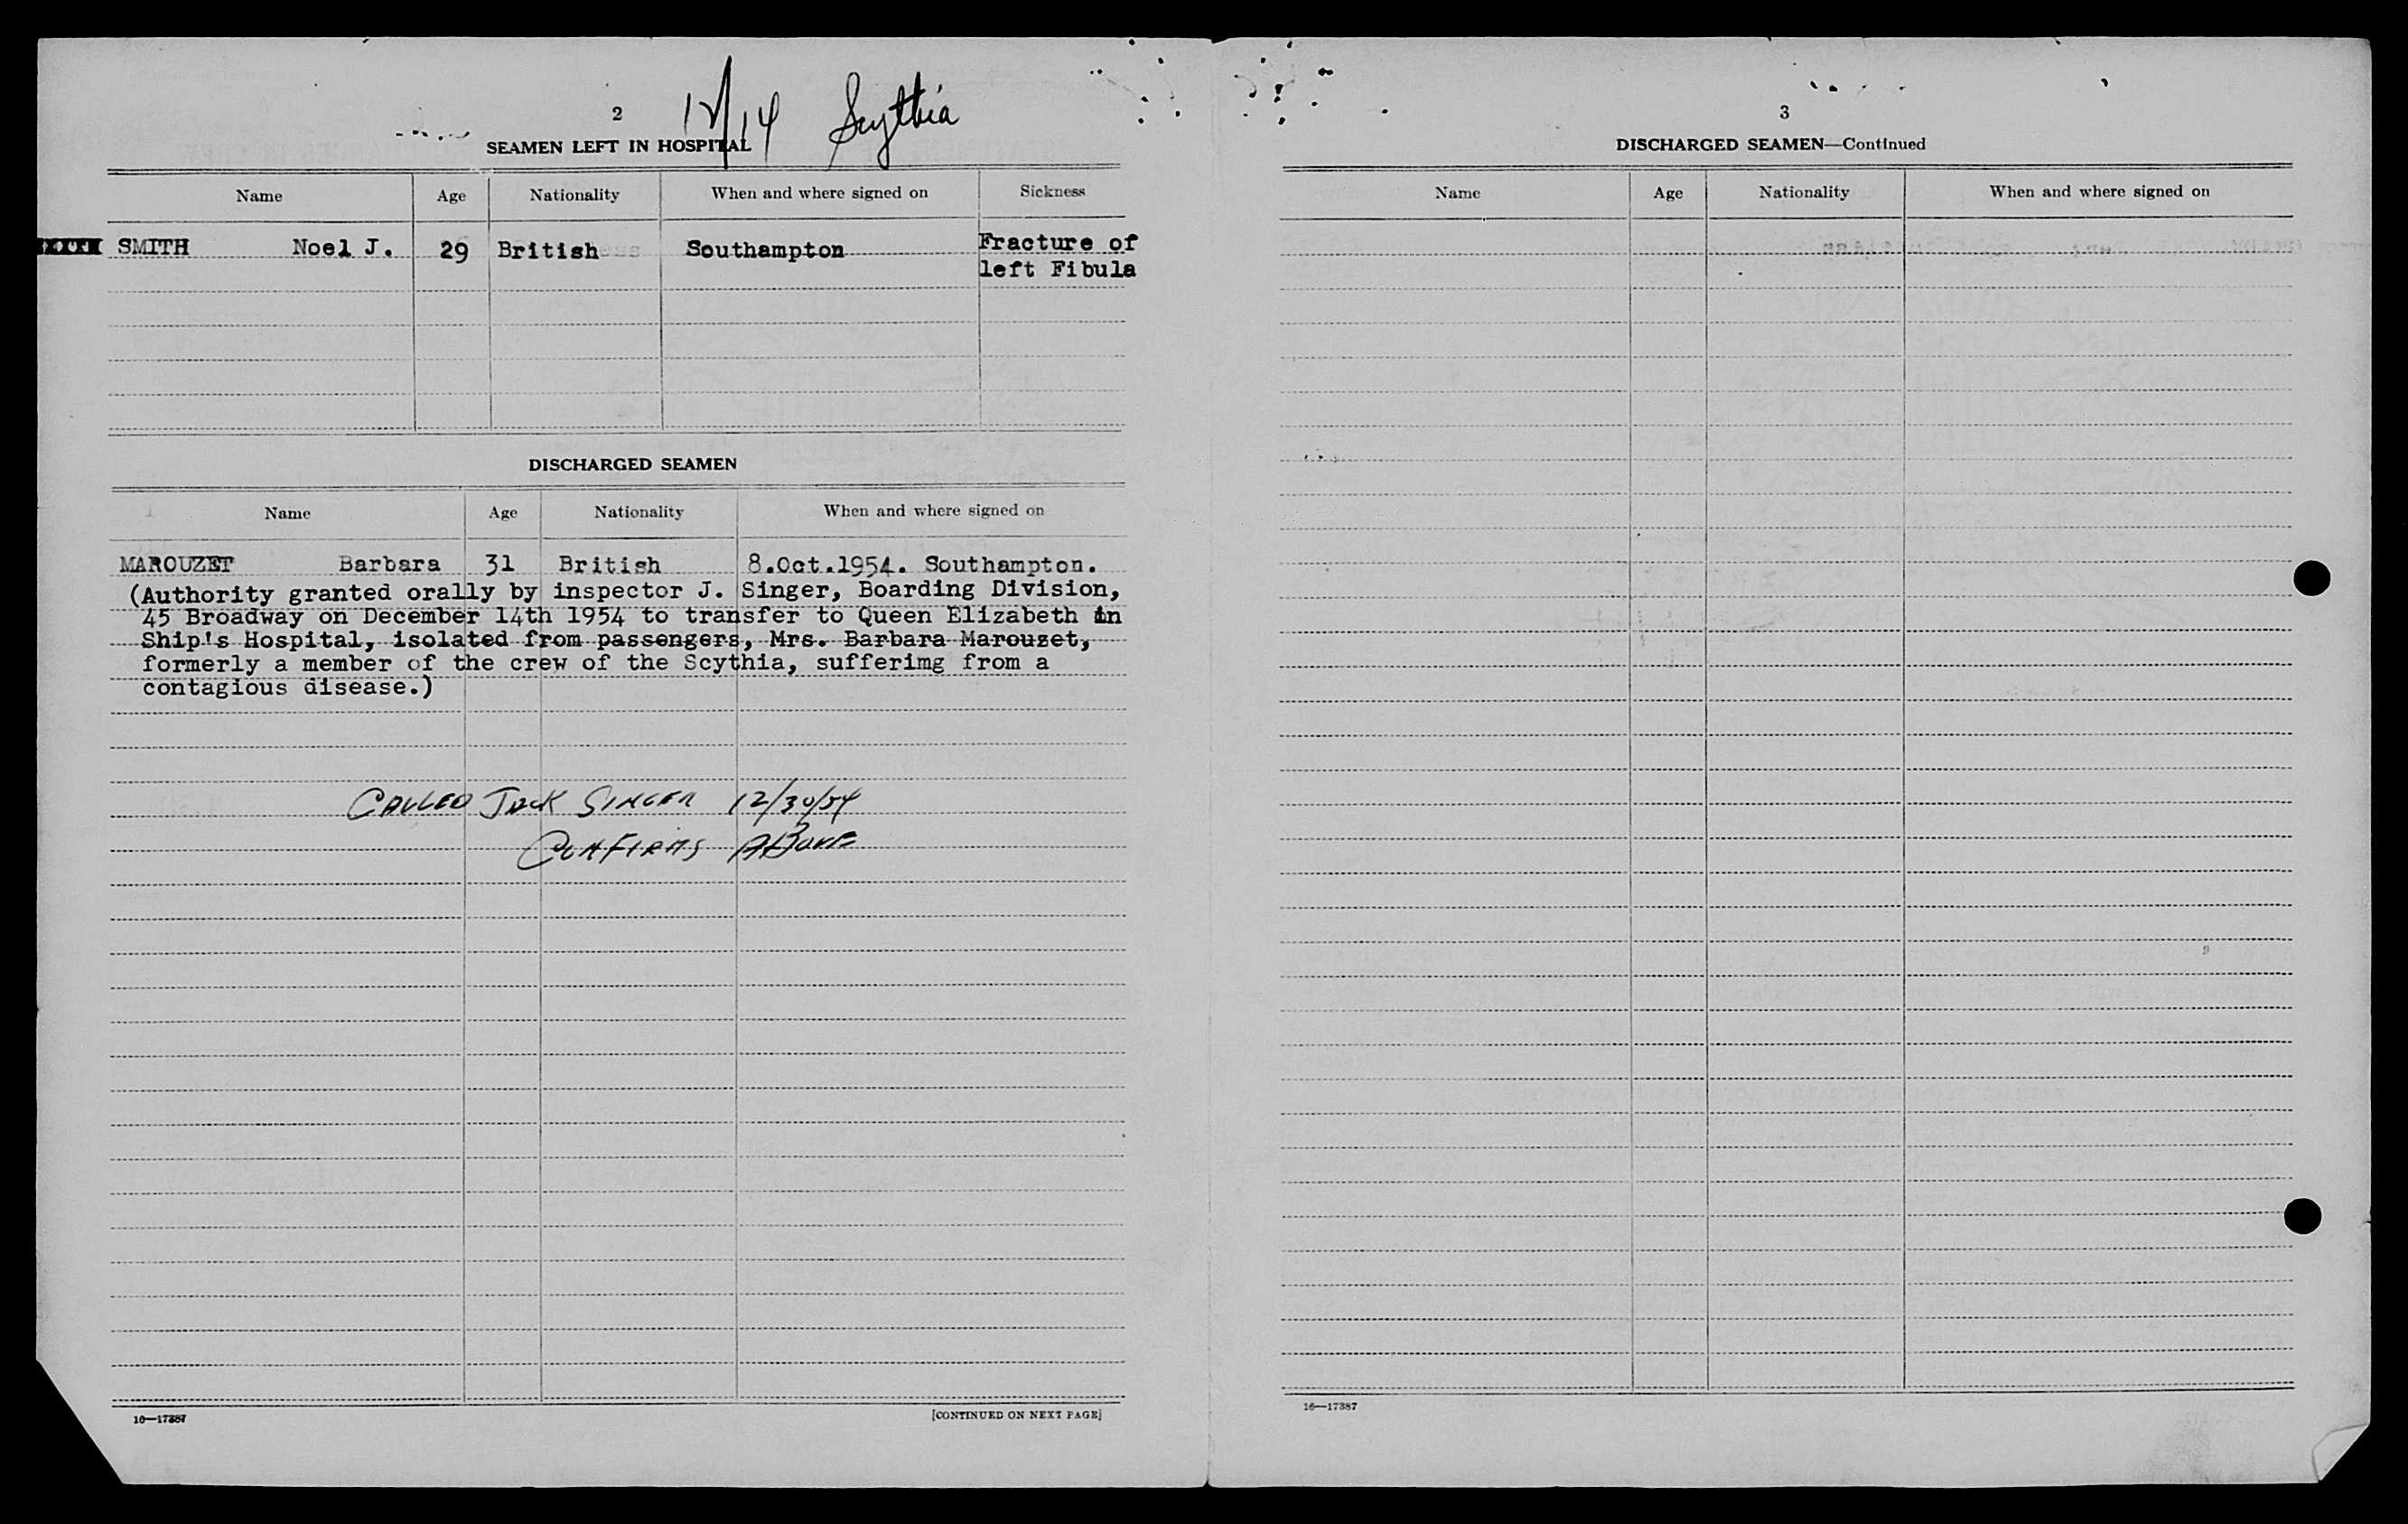 2
12/14 Scythia
SEAMEN LEFT IN HOSPITAL
Name Age Nationality When and where signed on Sickness
SMITH Noel J. 29 British Southampton Fracture of
left Fibula
DISCHARGED SEAMEN
Name Age Nationality When and where signed on
MAROUZET Barbara 31 British 8.Oct.1954. Southampton.
(Authority granted orally by inspector J. Singer, Boarding Division,
45 Broadway on December 14th 1954 to transfer to Queen Elizabeth in
Ship's Hospital, isolated from passengers, Mrs. Barbara Marouzet,
formerly a member of the crew of the Scythia, sufferimg from a
contagious disease.)
CALLED JACK SINGER 12/30/54
CONFIRMS ABOVE
16—17387
[CONTINUED ON NEXT PAGE]
3
DISCHARGED SEAMEN—Continued
Name Age Nationality When and where signed on
16—17387